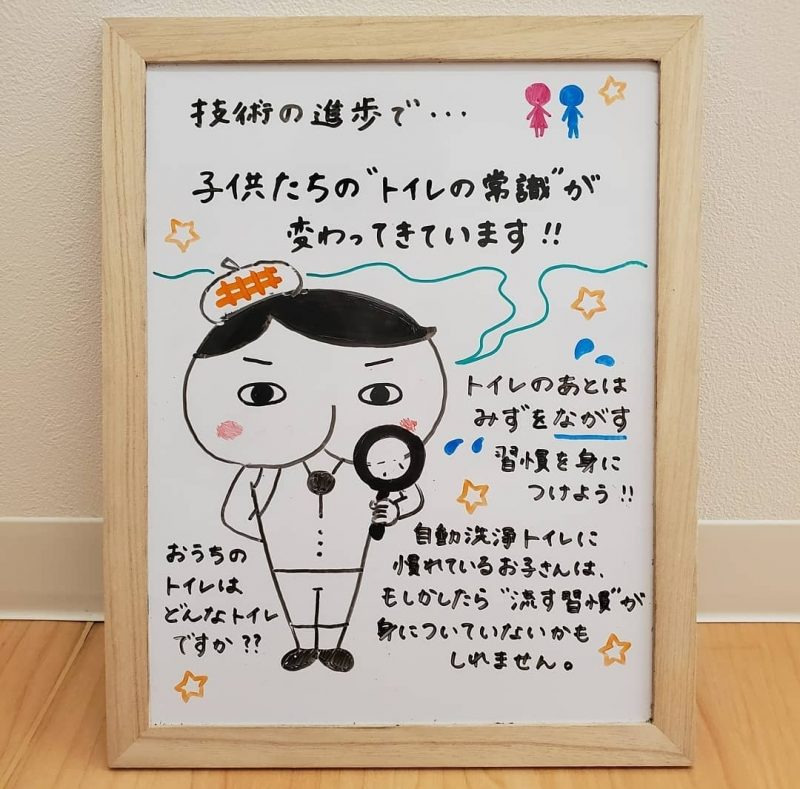 技術の進歩で・・・
子供たちの"トイレの常識"が
変わってきています!!
トイレのあとは
みずをながす
習慣を身に
つけよう!!
自動洗浄トイレに
慣れているお子さんは、
もしかしたら"流す習慣"が
身についていないかも
しれません。
おうちの
トイレは
どんなトイレ
ですか??